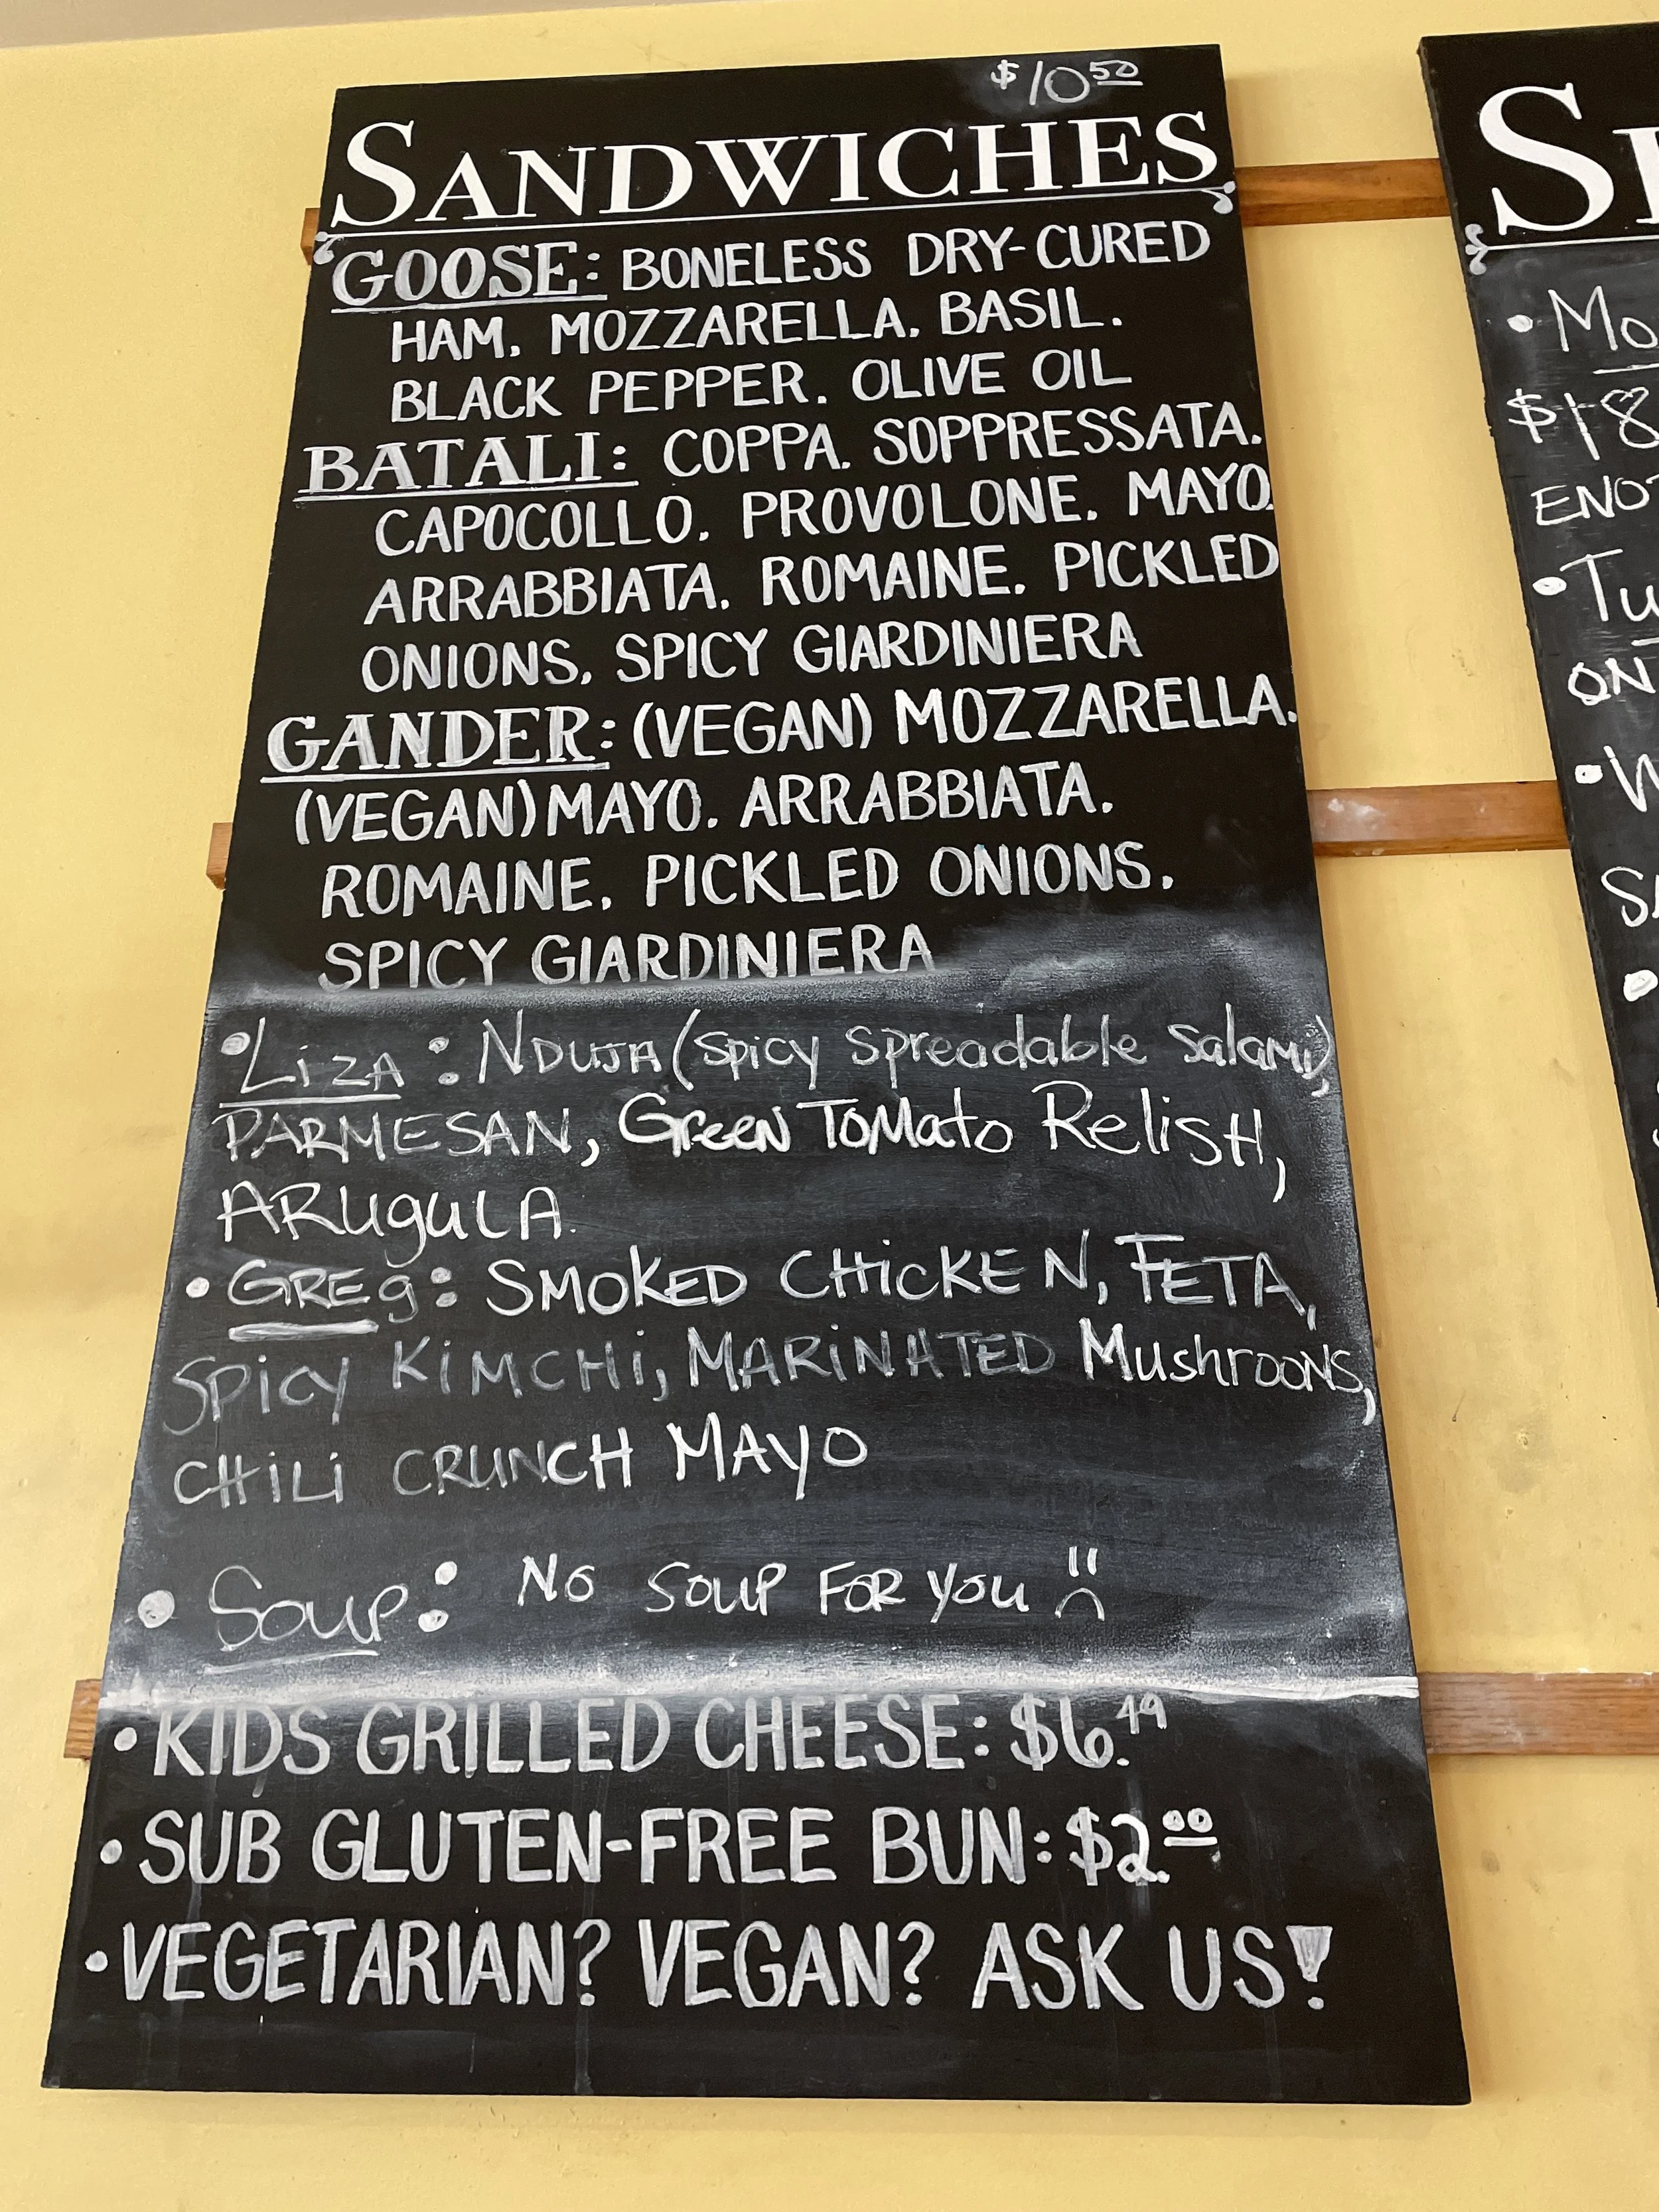 $10 50
SANDWICHES
GOOSE: BONELESS DRY-CURED
HAM. MOZZARELLA. BASIL.
BLACK PEPPER. OLIVE OIL
BATALI: COPPA. SOPPRESSATA.
CAPOCOLLO. PROVOLONE. MAYO.
ARRABBIATA. ROMAINE. PICKLED
ONIONS. SPICY GIARDINIERA
GANDER: (VEGAN) MOZZARELLA.
(VEGAN) MAYO. ARRABBIATA.
ROMAINE. PICKLED ONIONS.
SPICY GIARDINIERA
• LiZA: NDUJA (Spicy Spreadable Salami),
PARMESAN, Green TOMato Relish,
ARugulA.
• GREg: SMOKED CHicKEN, FETA,
Spicy KiMCHi, MARiNATED Mushrooms,
CHiLi CRUNCH MAYO
• Soup: No Soup FOR you
• KIDS GRILLED CHEESE: $6.49
• SUB GLUTEN-FREE BUN: $2.00
• VEGETARIAN? VEGAN? ASK US!
• Mo
$18
ENOT
• Tu
ON
• W
SA